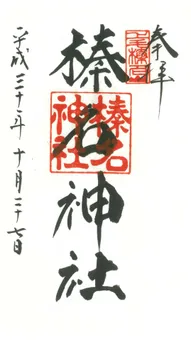 奉拝
榛名神社
榛名
神社
平成二十二年十月二十七日